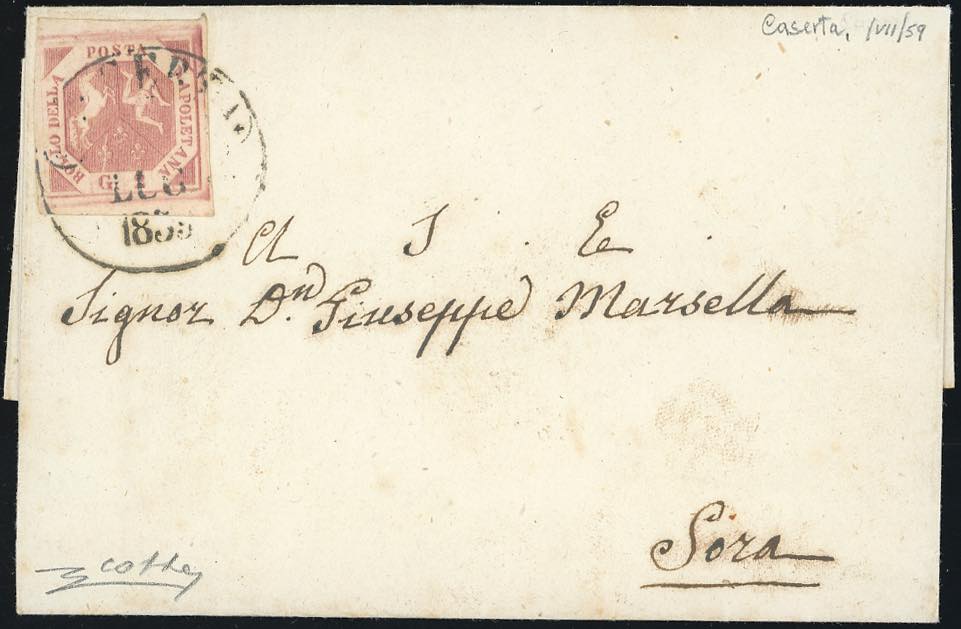 Caserta, 1/VII/59
POSTA
BOLLO DELLA
NAPOLETANA
G
LUG
1859
A S E
Signor Dn. Giuseppe Marsella
Sora